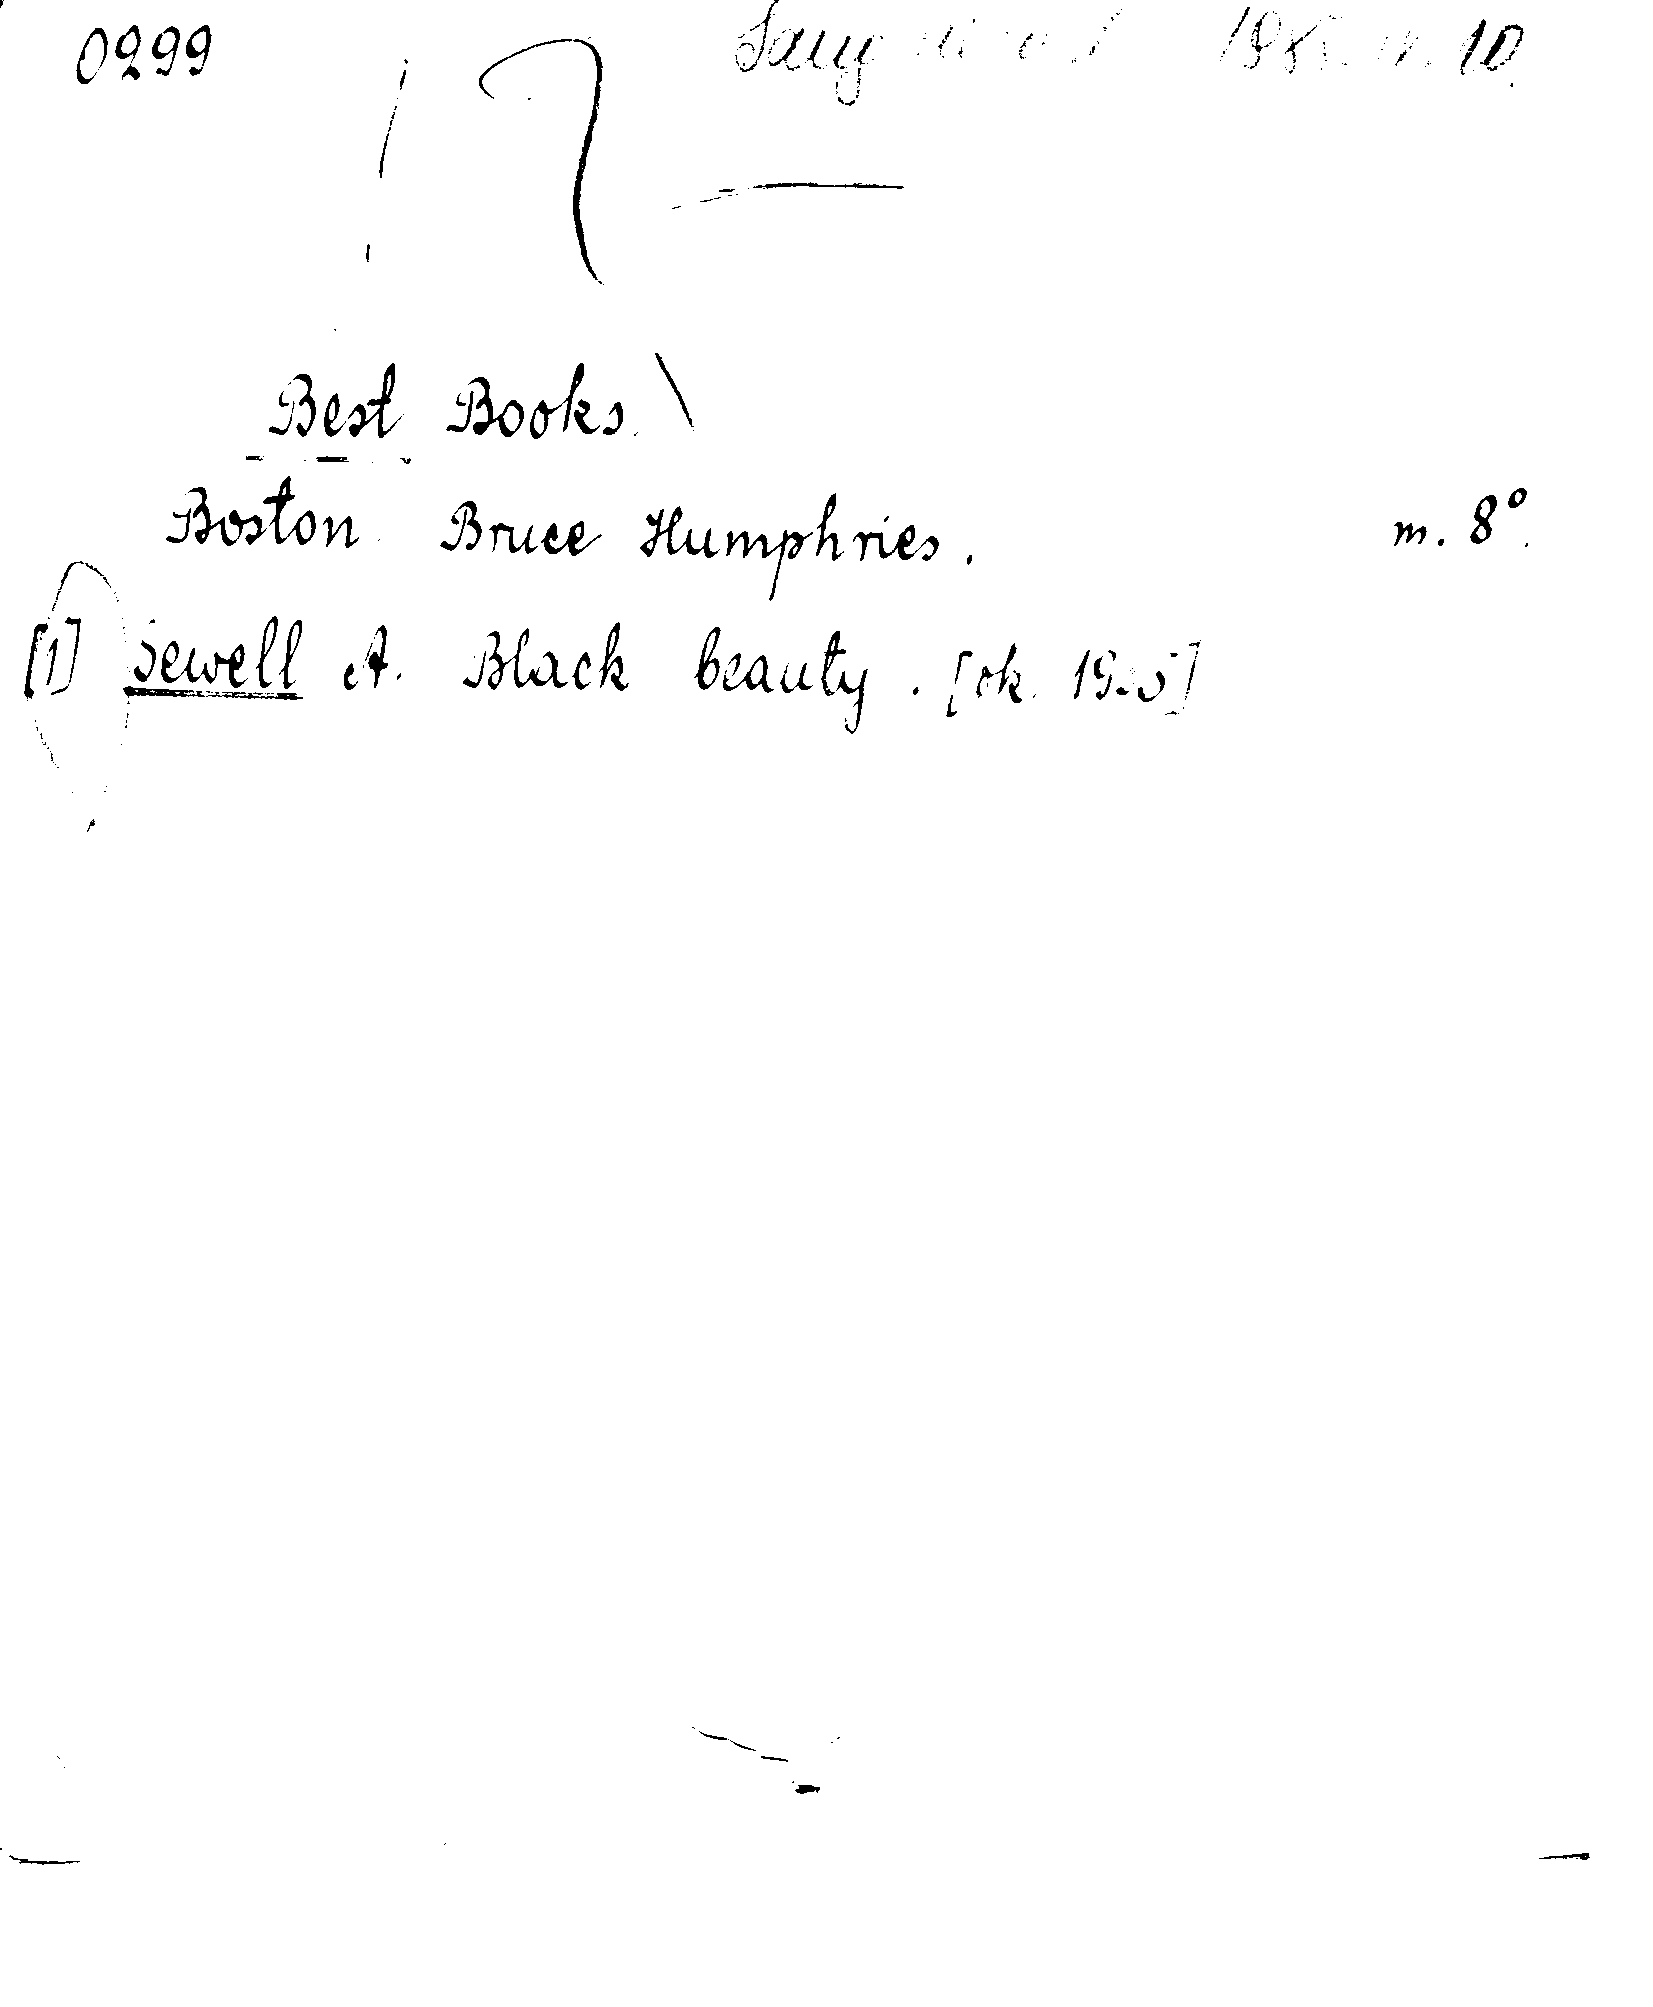 0299 10.
Best Books.
Boston Bruce Humphries. m. 8°.
[1] Sewell A. Black beauty. [ok.